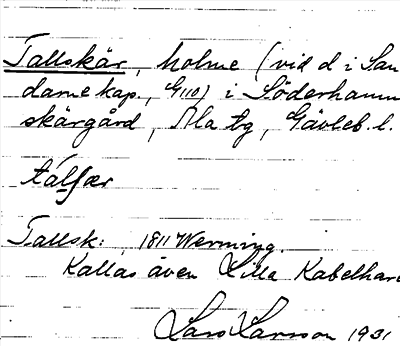 Tallskär, holme (vid d i San
darne kap., G110) i Söderhamn
skärgård, Ala tg, Gävleb. l.
Tallsk: 1811 Werming.
Kallas även Lilla Kabelhar
Lars Larsson 1931